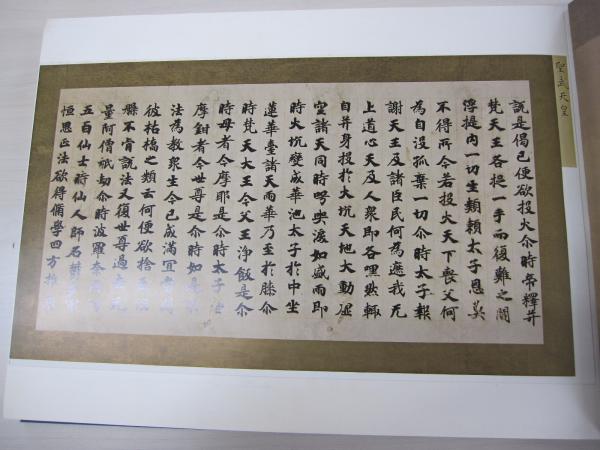 聖武天皇
說是偈已便欲投火尒時帝釋并
梵天王各捉一手而復難之閻
浮提內一切生類賴太子恩莫
不得所今若投火天下喪父何
為自沒孤棄一切尒時太子報
謝天王及諸臣民何為遮我无
上道心天及人衆即各嘿然輙
自并身投於火坑天地大動虛
空諸天同時号哭淚如盛雨即
時火坑變成華池太子於中坐
蓮華臺諸天雨華乃至於膝尒
時梵天大王今父王淨飯是尒
時母者今摩耶是尒時太子
摩鉗者今世尊是尒時如是
法為教衆生今已成滿冝當
彼枯槁之類云何便欲捨
縣不肯說法又復世尊過去
量阿僧祇劫尒時波羅奈
五百仙士時仙人師名鬱
恒思正法欲得備學四方推